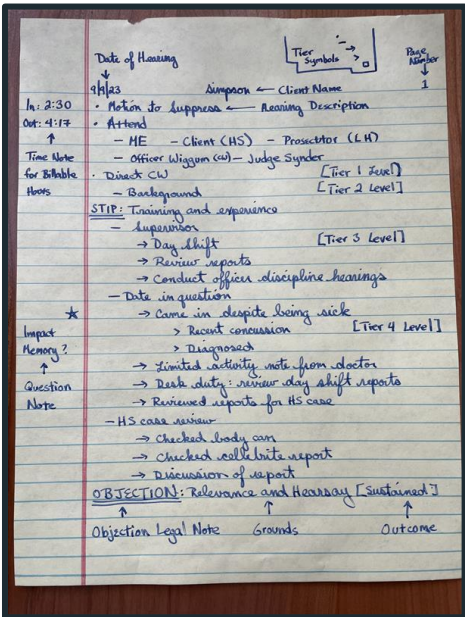 Date of Hearing
Tier Symbols
Page Number
9/9/23
Simpson ← Client Name
1
In: 2:30
• Motion to Suppress ← Hearing Description
Out: 4:17
• Attend
– ME – Client (HS) – Prosecutor (LH)
Time Note for Billable Hours
– Officer Wiggum (CW) – Judge Synder
• Direct CW [Tier 1 Level]
– Background [Tier 2 Level]
STIP: Training and experience
– Supervisor
→ Day Shift [Tier 3 Level]
→ Review reports
→ Conduct officer discipline hearings
– Date in question
★ → Came in despite being sick
Impact Memory?
> Recent concussion [Tier 4 Level]
> Diagnosed
Question Note
→ Limited activity note from doctor
→ Desk duty: review day shift reports
→ Reviewed reports for HS case
– HS case review
→ Checked body cam
→ Checked cellebrite report
→ Discussion of report
OBJECTION: Relevance and Hearsay [Sustained]
Objection Legal Note
Grounds
Outcome